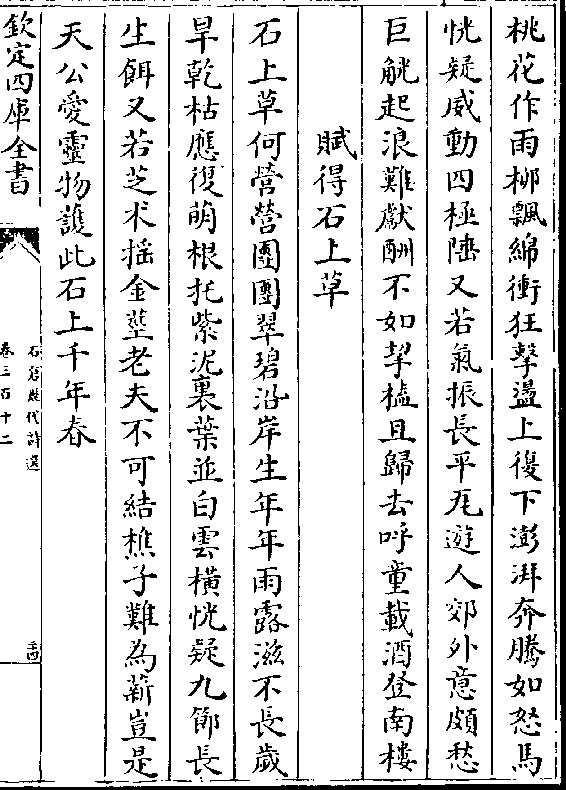 桃花作雨柳飄綿衝狂擊盪上復下澎湃奔騰如怒馬
恍疑威動四極陲又若氣振長平瓦遊人郊外意頗愁
巨觥起浪難獻酬不如挐榼且歸去呼童載酒登南樓
賦得石上草
石上草何營營團團翠碧沿岸生年年雨露滋不長歲
旱乾枯應復萌根托紫泥裏葉並白雲橫恍疑九節長
生餌又若芝朮揺金莖老夫不可結樵子難為薪豈是
天公愛靈物護此石上千年春
欽定四庫全書
石倉歷代詩選
卷三百十二